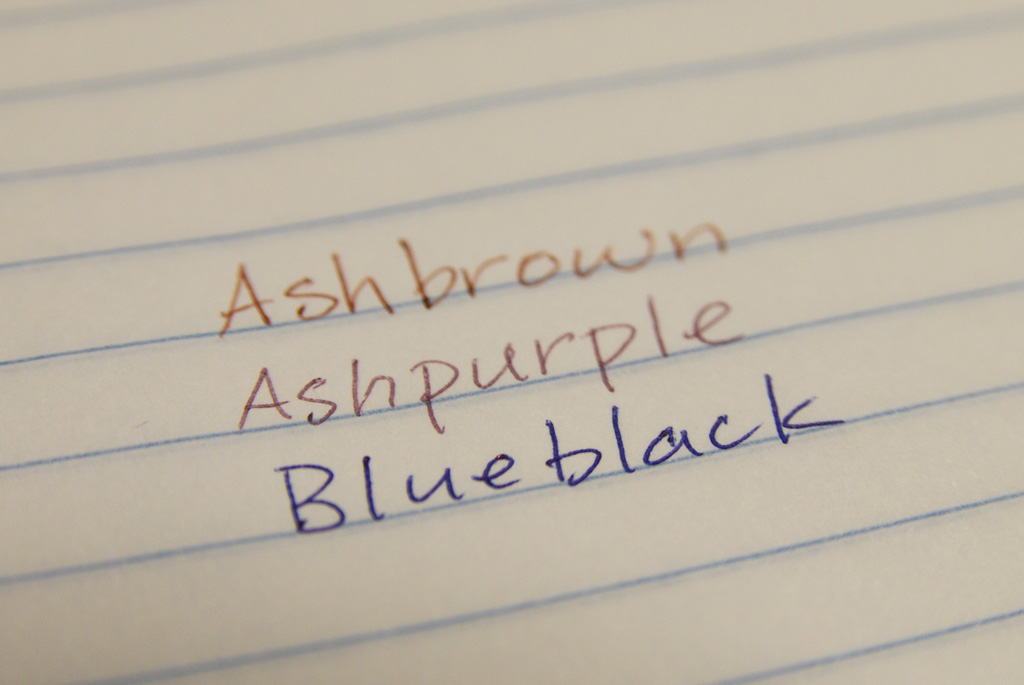 Ashbrown
Ashpurple
Blueblack